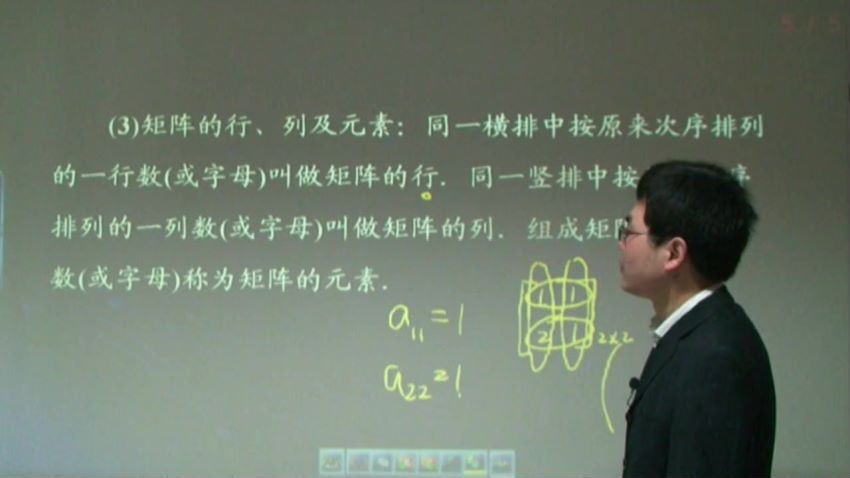 5 / 5
(3)矩阵的行、列及元素：同一横排中按原来次序排列
的一行数(或字母)叫做矩阵的行．同一竖排中按 序
排列的一列数(或字母)叫做矩阵的列．组成矩
数(或字母)称为矩阵的元素．
1 1
2 1 2×2
a₁₁=1
a₂₂=1